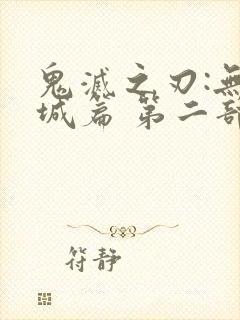 鬼滅之刃:無
城篇 第二部
符靜